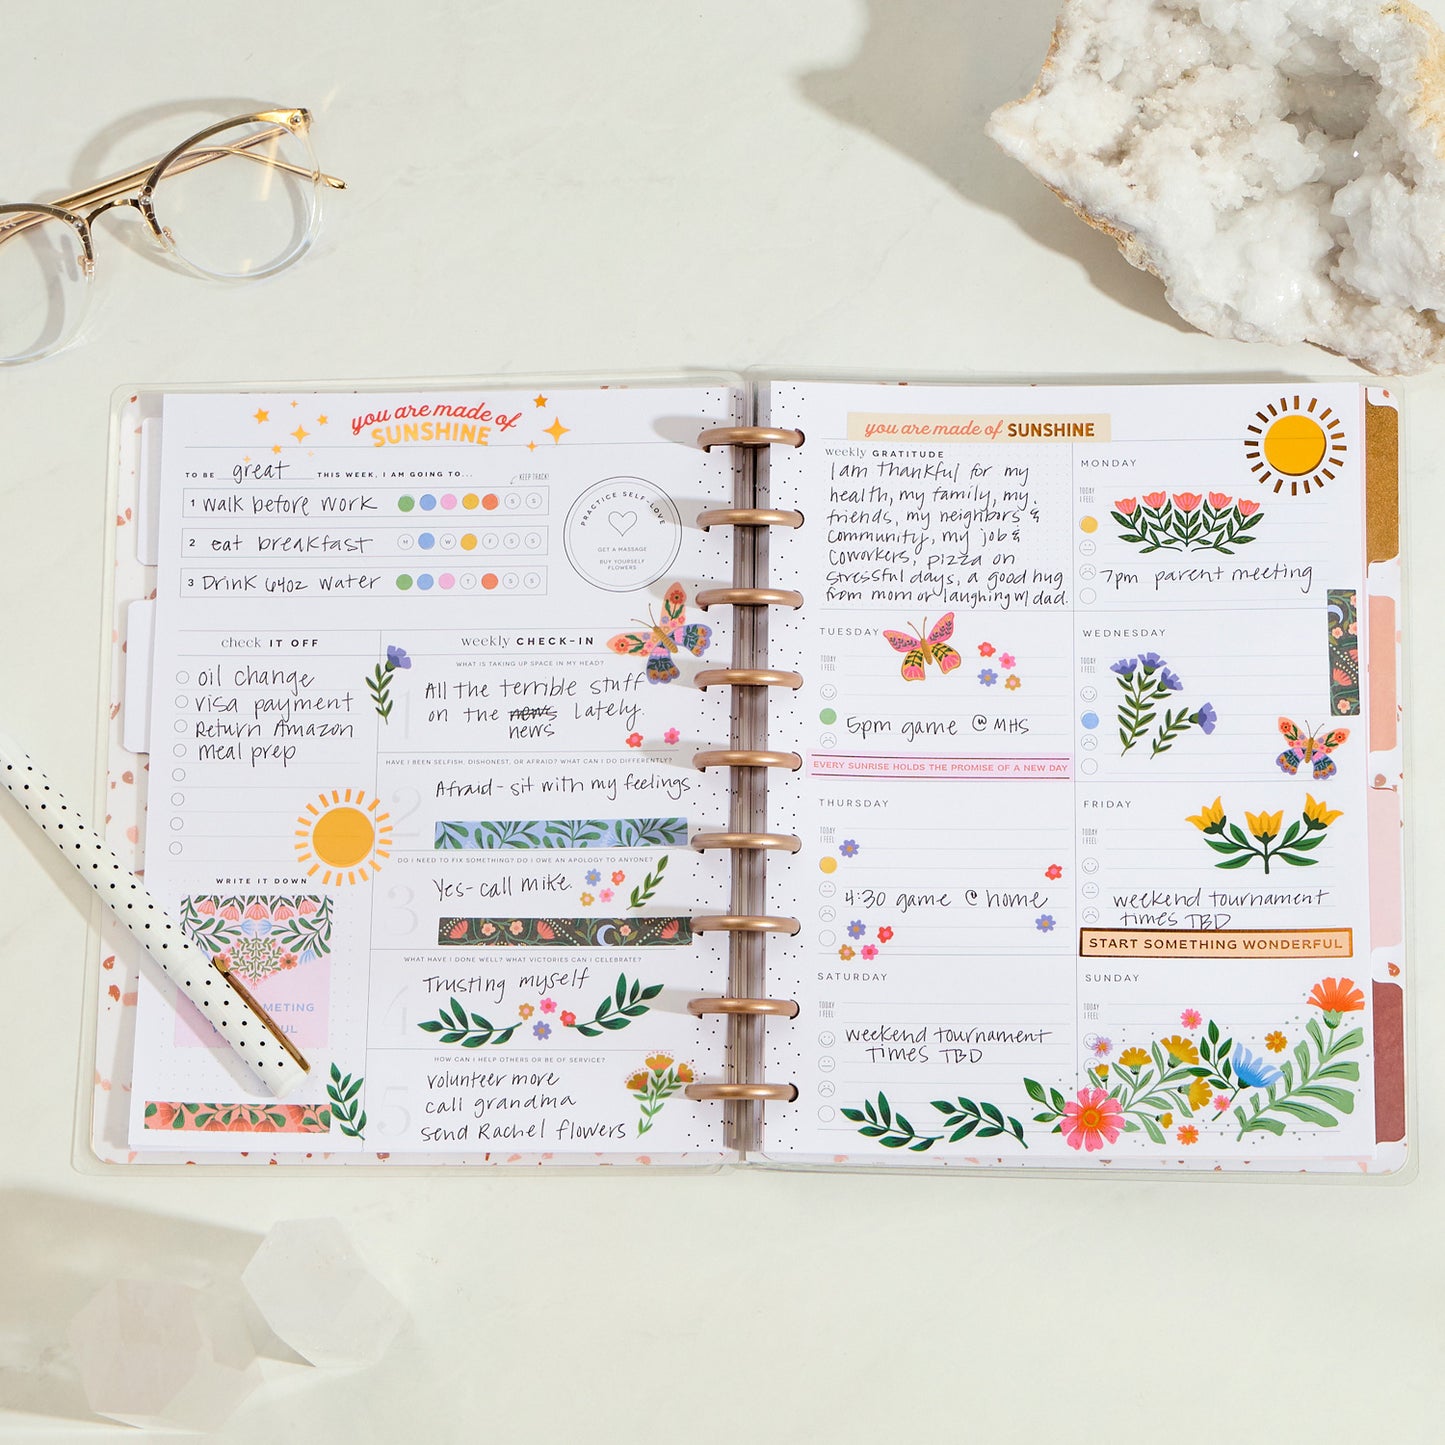 you are made of
SUNSHINE
TO BE great THIS WEEK, I AM GOING TO...
KEEP TRACK!
1 walk before work S S
2 eat breakfast M W F S S
3 Drink 64oz water T S S
PRACTICE SELF-LOVE
GET A MASSAGE
BUY YOURSELF
FLOWERS
check IT OFF
oil change
visa payment
Return Amazon
meal prep
WRITE IT DOWN
weekly CHECK-IN
WHAT IS TAKING UP SPACE IN MY HEAD?
1
All the terrible stuff
on the news lately.
news
HAVE I BEEN SELFISH, DISHONEST, OR AFRAID? WHAT CAN I DO DIFFERENTLY?
2
Afraid - sit with my feelings
DO I NEED TO FIX SOMETHING? DO I OWE AN APOLOGY TO ANYONE?
3
Yes - call mike.
WHAT HAVE I DONE WELL? WHAT VICTORIES CAN I CELEBRATE?
4
Trusting myself
HOW CAN I HELP OTHERS OR BE OF SERVICE?
5
volunteer more
call grandma
send Rachel flowers
you are made of SUNSHINE
weekly GRATITUDE
I am thankful for my
health, my family, my
friends, my neighbors &
community, my job &
coworkers, pizza on
stressful days, a good hug
from mom or laughing w/ dad.
MONDAY
TODAY
I FEEL:
7pm parent meeting
TUESDAY
TODAY
I FEEL:
5pm game @ MHS
EVERY SUNRISE HOLDS THE PROMISE OF A NEW DAY
WEDNESDAY
TODAY
I FEEL:
THURSDAY
TODAY
I FEEL:
4:30 game @ home
FRIDAY
TODAY
I FEEL:
weekend tournament
times TBD
START SOMETHING WONDERFUL
SATURDAY
TODAY
I FEEL:
weekend tournament
times TBD
SUNDAY
TODAY
I FEEL: